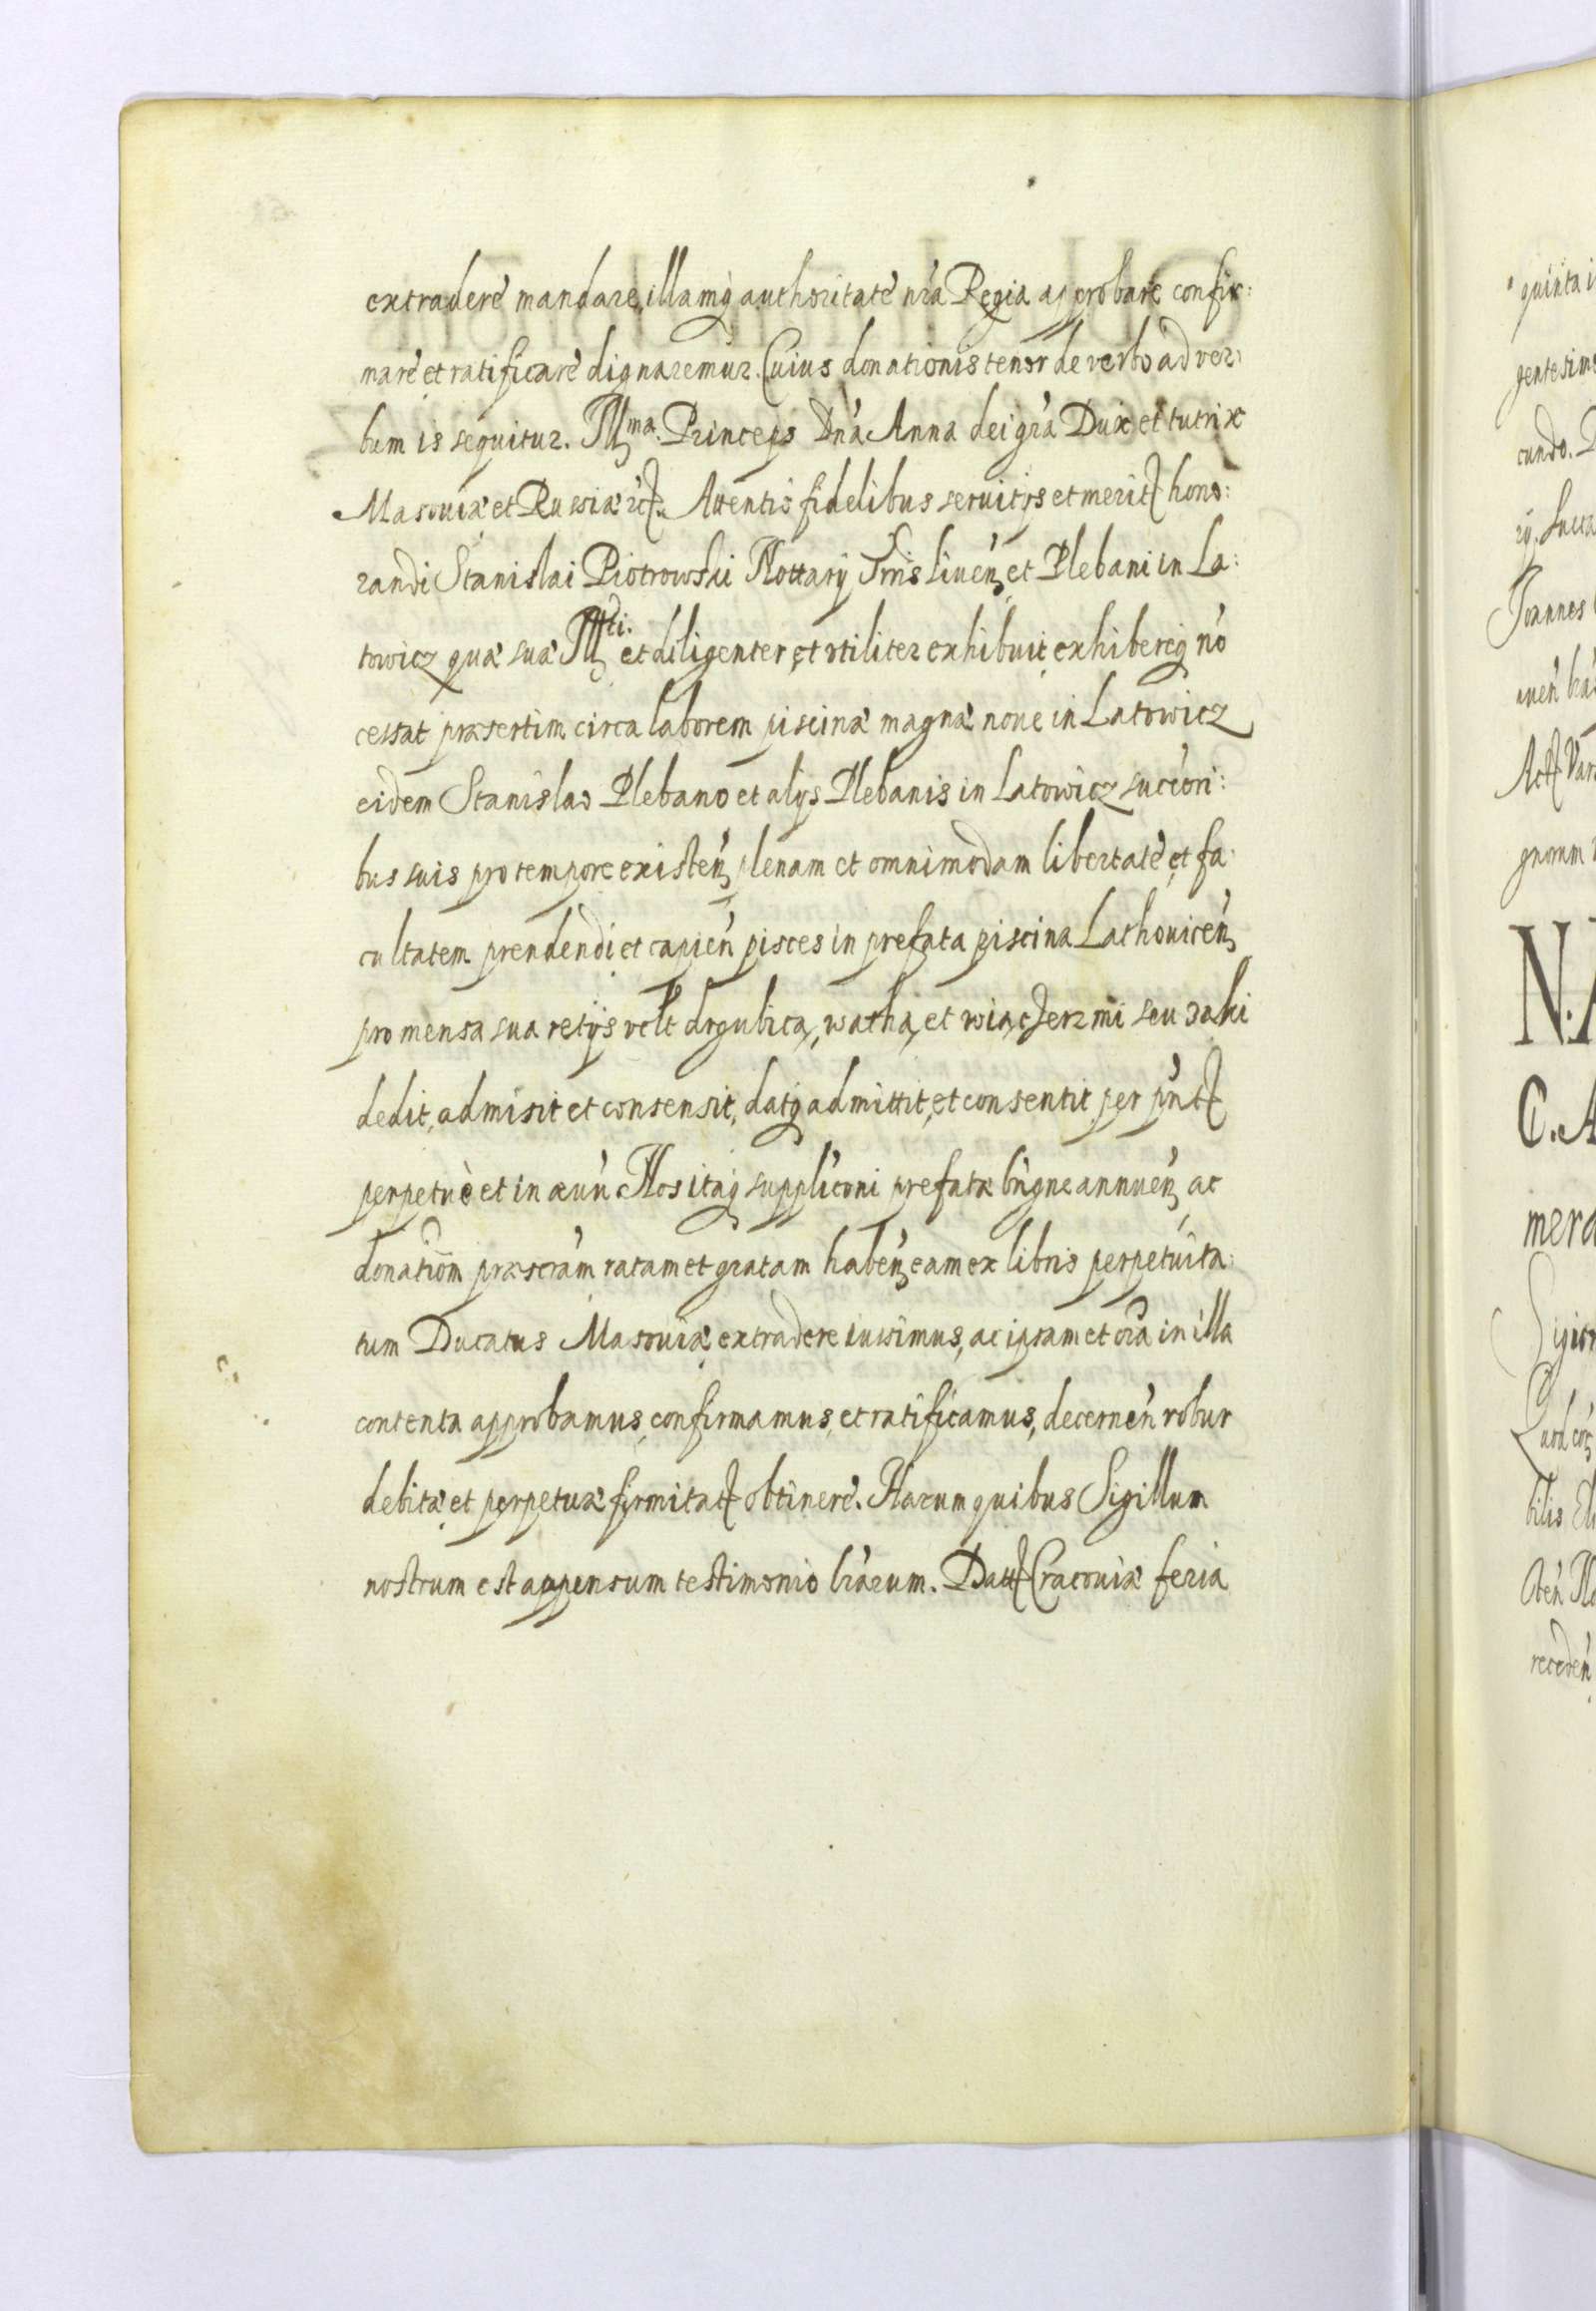 extraderè mandare, illamq́ authoritatè nr̃a Regia approbarè confir:
marè et ratificarè dignaremur. Cuius donationis tenor de verbo ad ver:
bum is sequitur. Ill ma. Princeps Dnã Anna dei gr̃a Dux et tutrix
Masouiæ et Russiæ etc. Attentis fidelibus seruitijs et meritꝭ hono:
randi Stanislai Piotrowski Nottarij Trr̃is liuen̄ et Plebani in La:
towicz quæ suæ Ill ti. et diligenter et vtiliter exhibuit exhibereq́ nõ
cessat præsertim circa laborem piscinæ magnæ noue in Latowicz
eidem Stanislao Plebano et alijs Plebanis in Latowicz succ̃ori:
bus suis pro tempore existeñ plenam et omnimodam libertatè et fa:
cultatem prendendi et capieñ pisces in prefata piscina Lathouiceñ
pro mensa sua retijs vełt drgubica, watha, et wiączerzmi seu zaki
dedit, admisit et consensit, datq́ admittit, et consentit per pñtꝭ
perpetuè et in æuũ Nos itaq́ supplic̃oni prefatæ bñgne annueñ ac
donatiõm præscr̃am ratam et gratam habeñ eam ex libris perpetuita:
tum Ducatus Masouiæ extradere iussimus, ac ipsam et oĩa in illa
contenta approbamus, confirmamus, et ratificamus, decerneñ robur
debitæ et perpetuæ firmitatꝭ obtinerè. Harum quibus Sigillum
nostrum est appensum testimonio lr̃arum. Dattꝭ Cracouiæ feria
quinta
gentesim
cundo.
Joannes
N.
C. A
mera
bilis